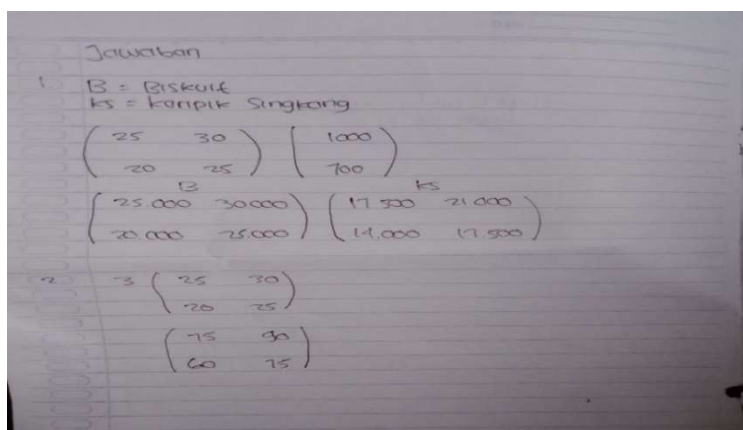 Jawaban
1. B = Biskuit
KS = Keripik Singkong
( 25 30 ) ( 1000 )
( 20 25 ) ( 700 )
B KS
( 25.000 30000 ) ( 17 500 21 000 )
( 20.000 25.000 ) ( 14.000 17.500 )
2 3 ( 25 30 )
( 20 25 )
( 75 90 )
( 60 75 )